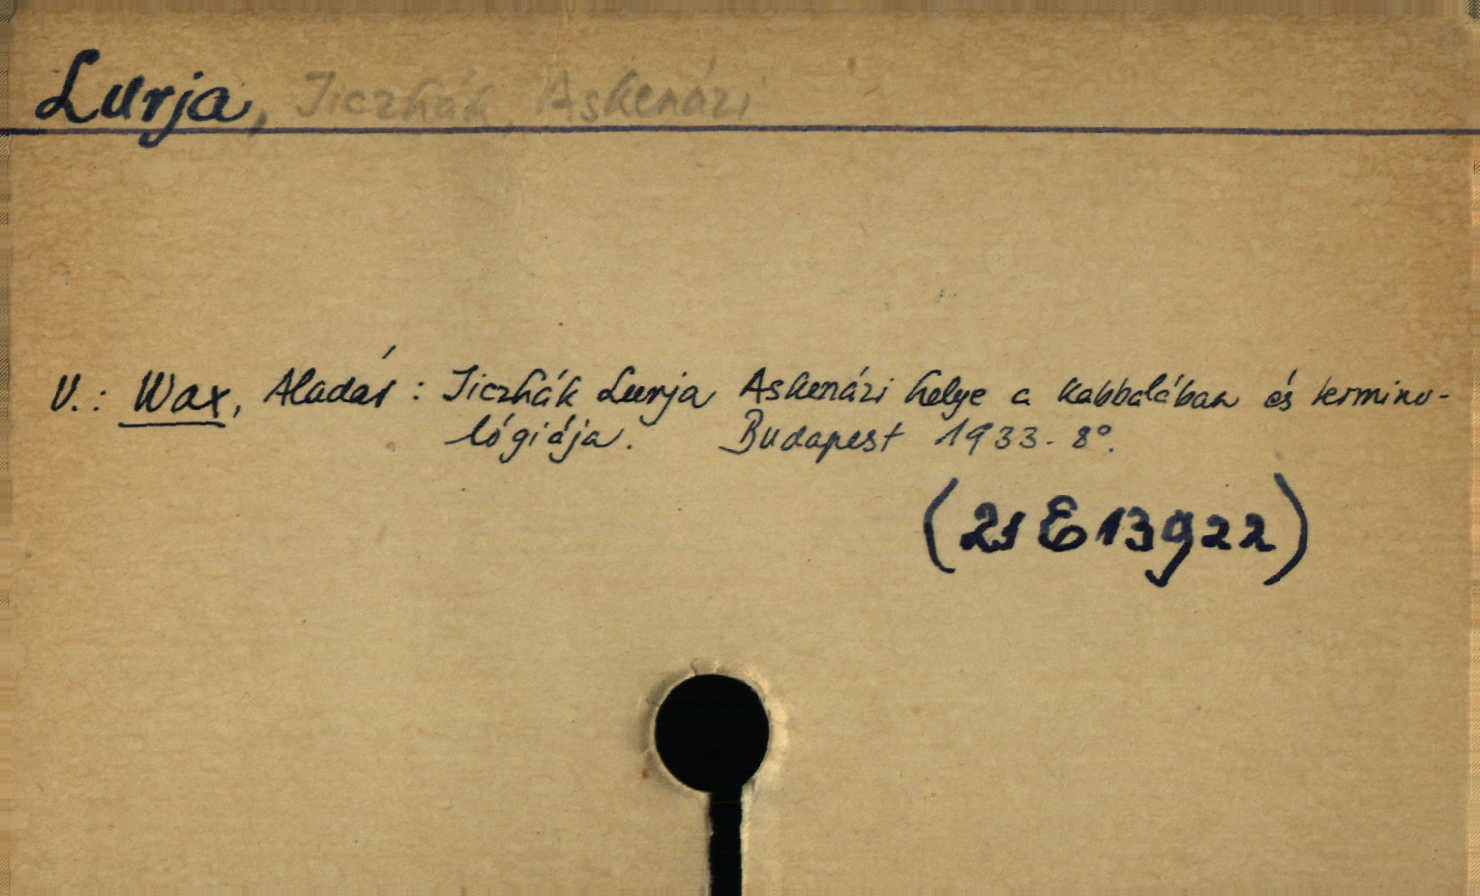 Lurja, Jiczhák Askenázi
V.: Wax, Aladár : Jiczhák Lurja Askenázi helye a kabbalában és termino-
lógiája. Budapest 1933. 8°.
(21 E 13922)